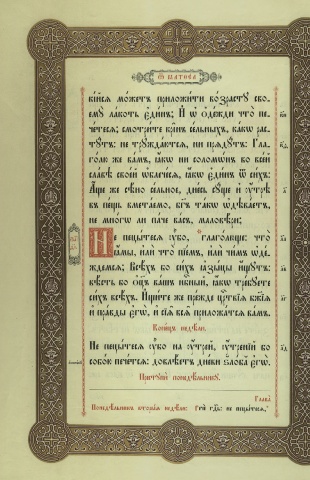 Ѿ МАТѲЕА
вѣйсѧ мо́жетъ приложи́ти во́зрастꙋ свое-
мꙋ̀ ла́коть є҆ди́нъ; И҆ ѡ҆ ѻ҆де́жди что̀ пе-
че́тесѧ; смотри́те кри̑нъ се́льныхъ, ка́кѡ рас-
тꙋ́тъ: не трꙋжда́ютсѧ, ни прѧдꙋ́тъ: Гла-
го́лю же ва́мъ, ꙗ҆́кѡ ни соломѡ́нъ во все́й
сла́вѣ свое́й ѡ҆блече́сѧ, ꙗ҆́кѡ є҆ди́нъ ѿ си́хъ:
А҆́ще же сѣ́но се́льное, дне́сь сꙋ́ще и҆ ᲂу҆́трѣ
въ пе́щь вмета́емо, бг҃ъ та́кѡ ѡ҆дѣва́етъ,
не мно́гѡ ли па́че ва́съ, маловѣ́ри;
Не пецы́тесѧ ᲂу҆̀бо, глаго́люще: что̀
ꙗ҆́мы, и҆лѝ что̀ пїе́мъ, и҆лѝ чи́мъ ѡ҆де-
жде́мсѧ; Всѣ́хъ бо си́хъ ꙗ҆зы́цы и҆́щꙋтъ:
вѣ́сть бо ѻ҆ц҃ъ ва́шъ нбⷭ҇ный, ꙗ҆́кѡ тре́бꙋете
си́хъ всѣ́хъ. И҆щи́те же пре́жде црⷭ҇твїѧ бж҃їѧ
и҆ пра́вды є҆гѡ̀, и҆ сїѧ̑ всѧ̑ приложа́тсѧ ва́мъ.
Коне́цъ недѣ́ли.
Не пецы́тесѧ ᲂу҆̀бо на ᲂу҆́трей, ᲂу҆́тренїй бо
собо́ю пече́тсѧ: довлѣ́етъ дне́ви ѕло́ба є҆гѡ̀.
Пристꙋпѝ понедѣ́льникꙋ.
Глава̀